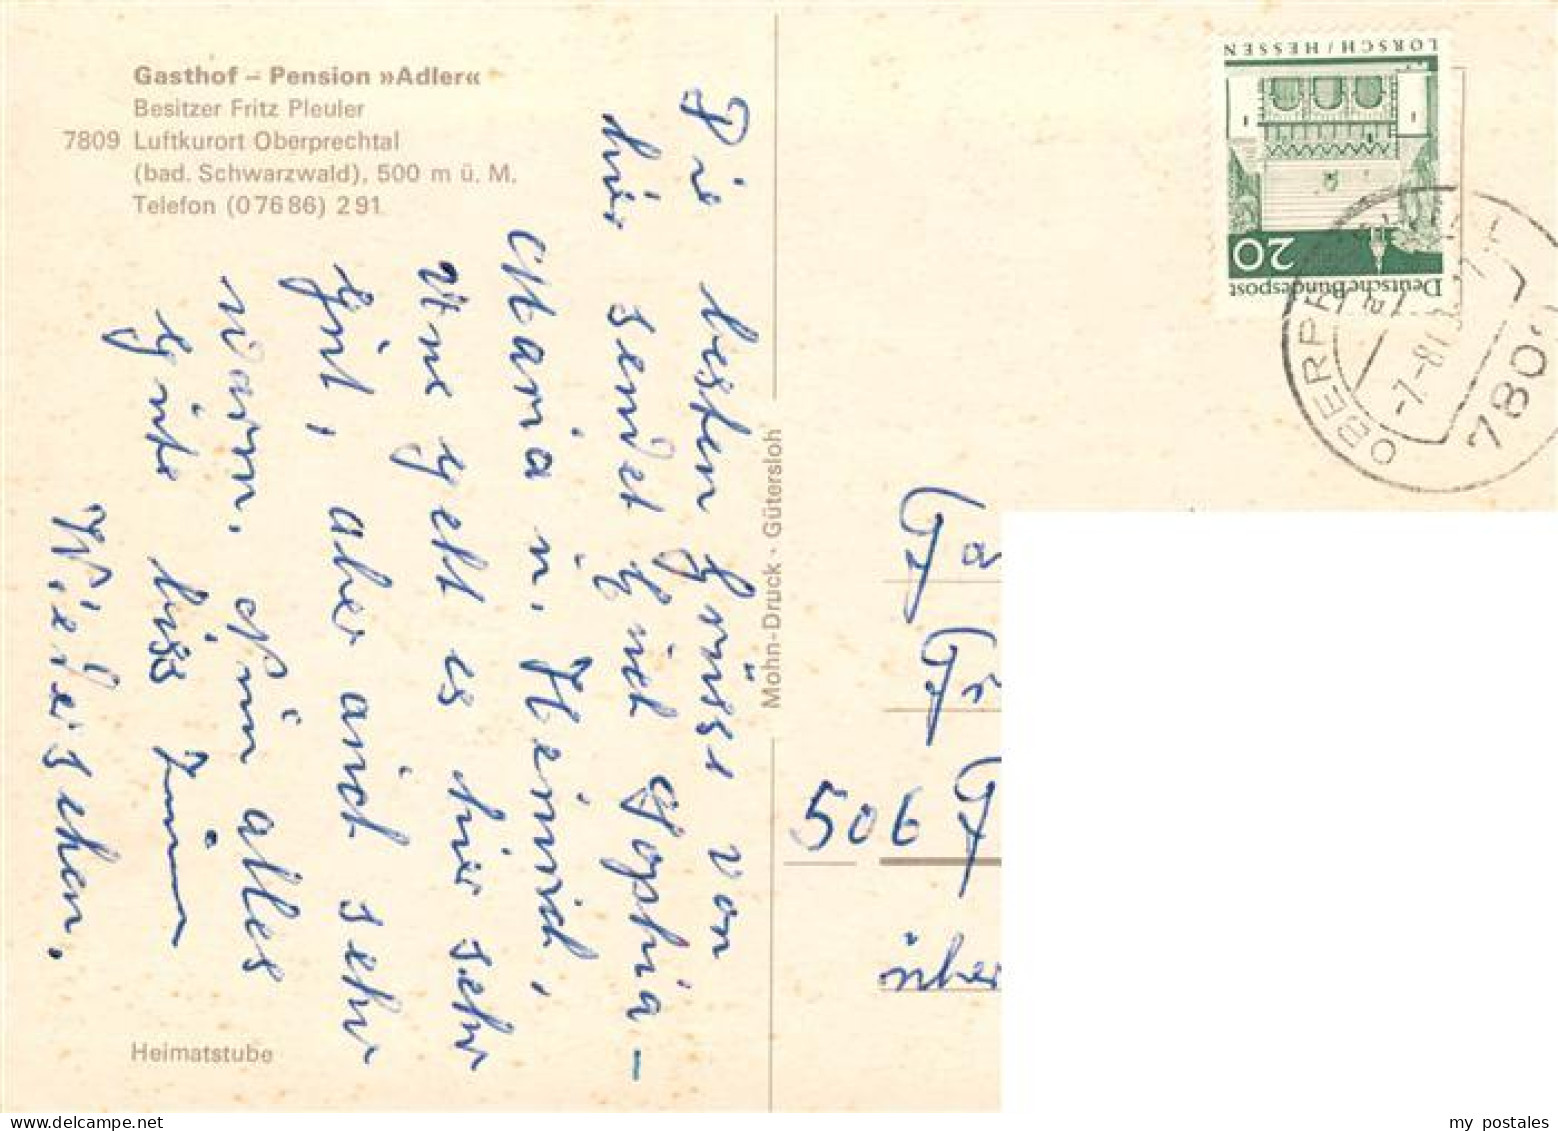 Gasthof – Pension »Adler«
Besitzer Fritz Pleuler
7809 Luftkurort Oberprechtal
(bad. Schwarzwald), 500 m ü. M.
Telefon (07686) 291
Die besten Grüsse von
hier sendet Euch Sophia-
Maria u. Heinrich,
Uns geht es hier sehr
Gut, aber auch sehr
warm. Nun alles
Gute biss zum
Wiedersehen.
Heimatstube
Mohn-Druck · Gütersloh
Deutsche Bundespost
20
LORSCH / HESSEN
OBERPR
780
506
über
my postales